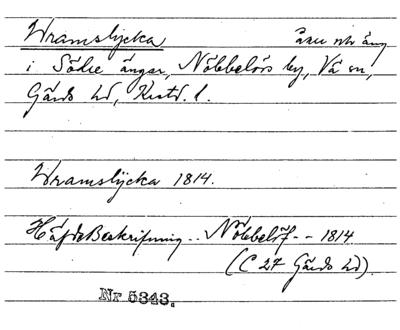 Wramslÿcka åker o. äng
i Södre ängar, Nöbbelöfs by, Vä sn,
Gärds hd, Krstd. l.
Wramslÿcka 1814.
HäfdeBeskrifning .. Nöbbelöf -- 1814
(C 27 Gärds hd).
Nr 5343.